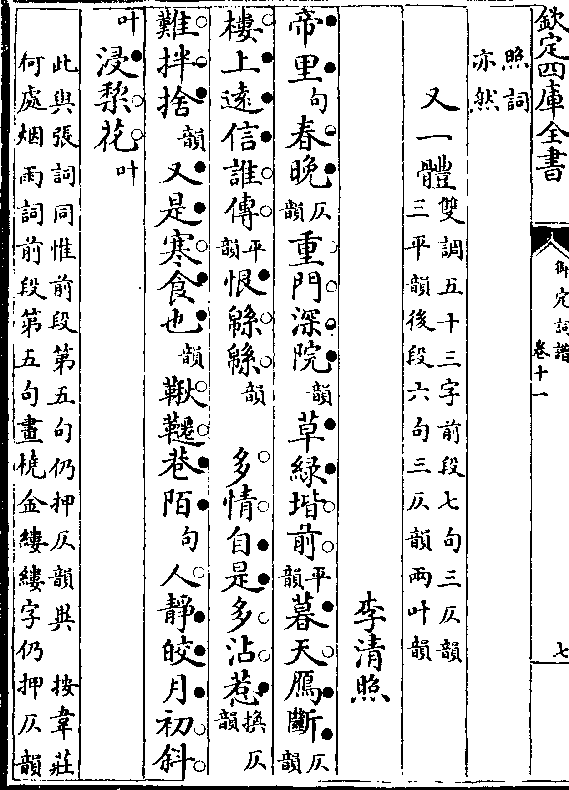 欽定四庫全書
御定詞譜
卷十一
七
照詞
亦然
又一體
雙調五十三字前段七句三仄韻
三平韻後段六句三仄韻兩叶韻
李清照
帝里句春晚仄韻重門深院韻草綠堦前平韻暮天鴈斷仄韻
樓上遠信誰傳平韻恨緜緜韻　多情自是多沾惹換仄韻
難拌捨韻又是寒食也韻鞦韆巷陌句人靜皎月初斜
叶浸棃花叶
此與張詞同惟前段第五句仍押仄韻與　按韋莊
何處烟雨詞前段第五句畫橈金縷縷字仍押仄韻